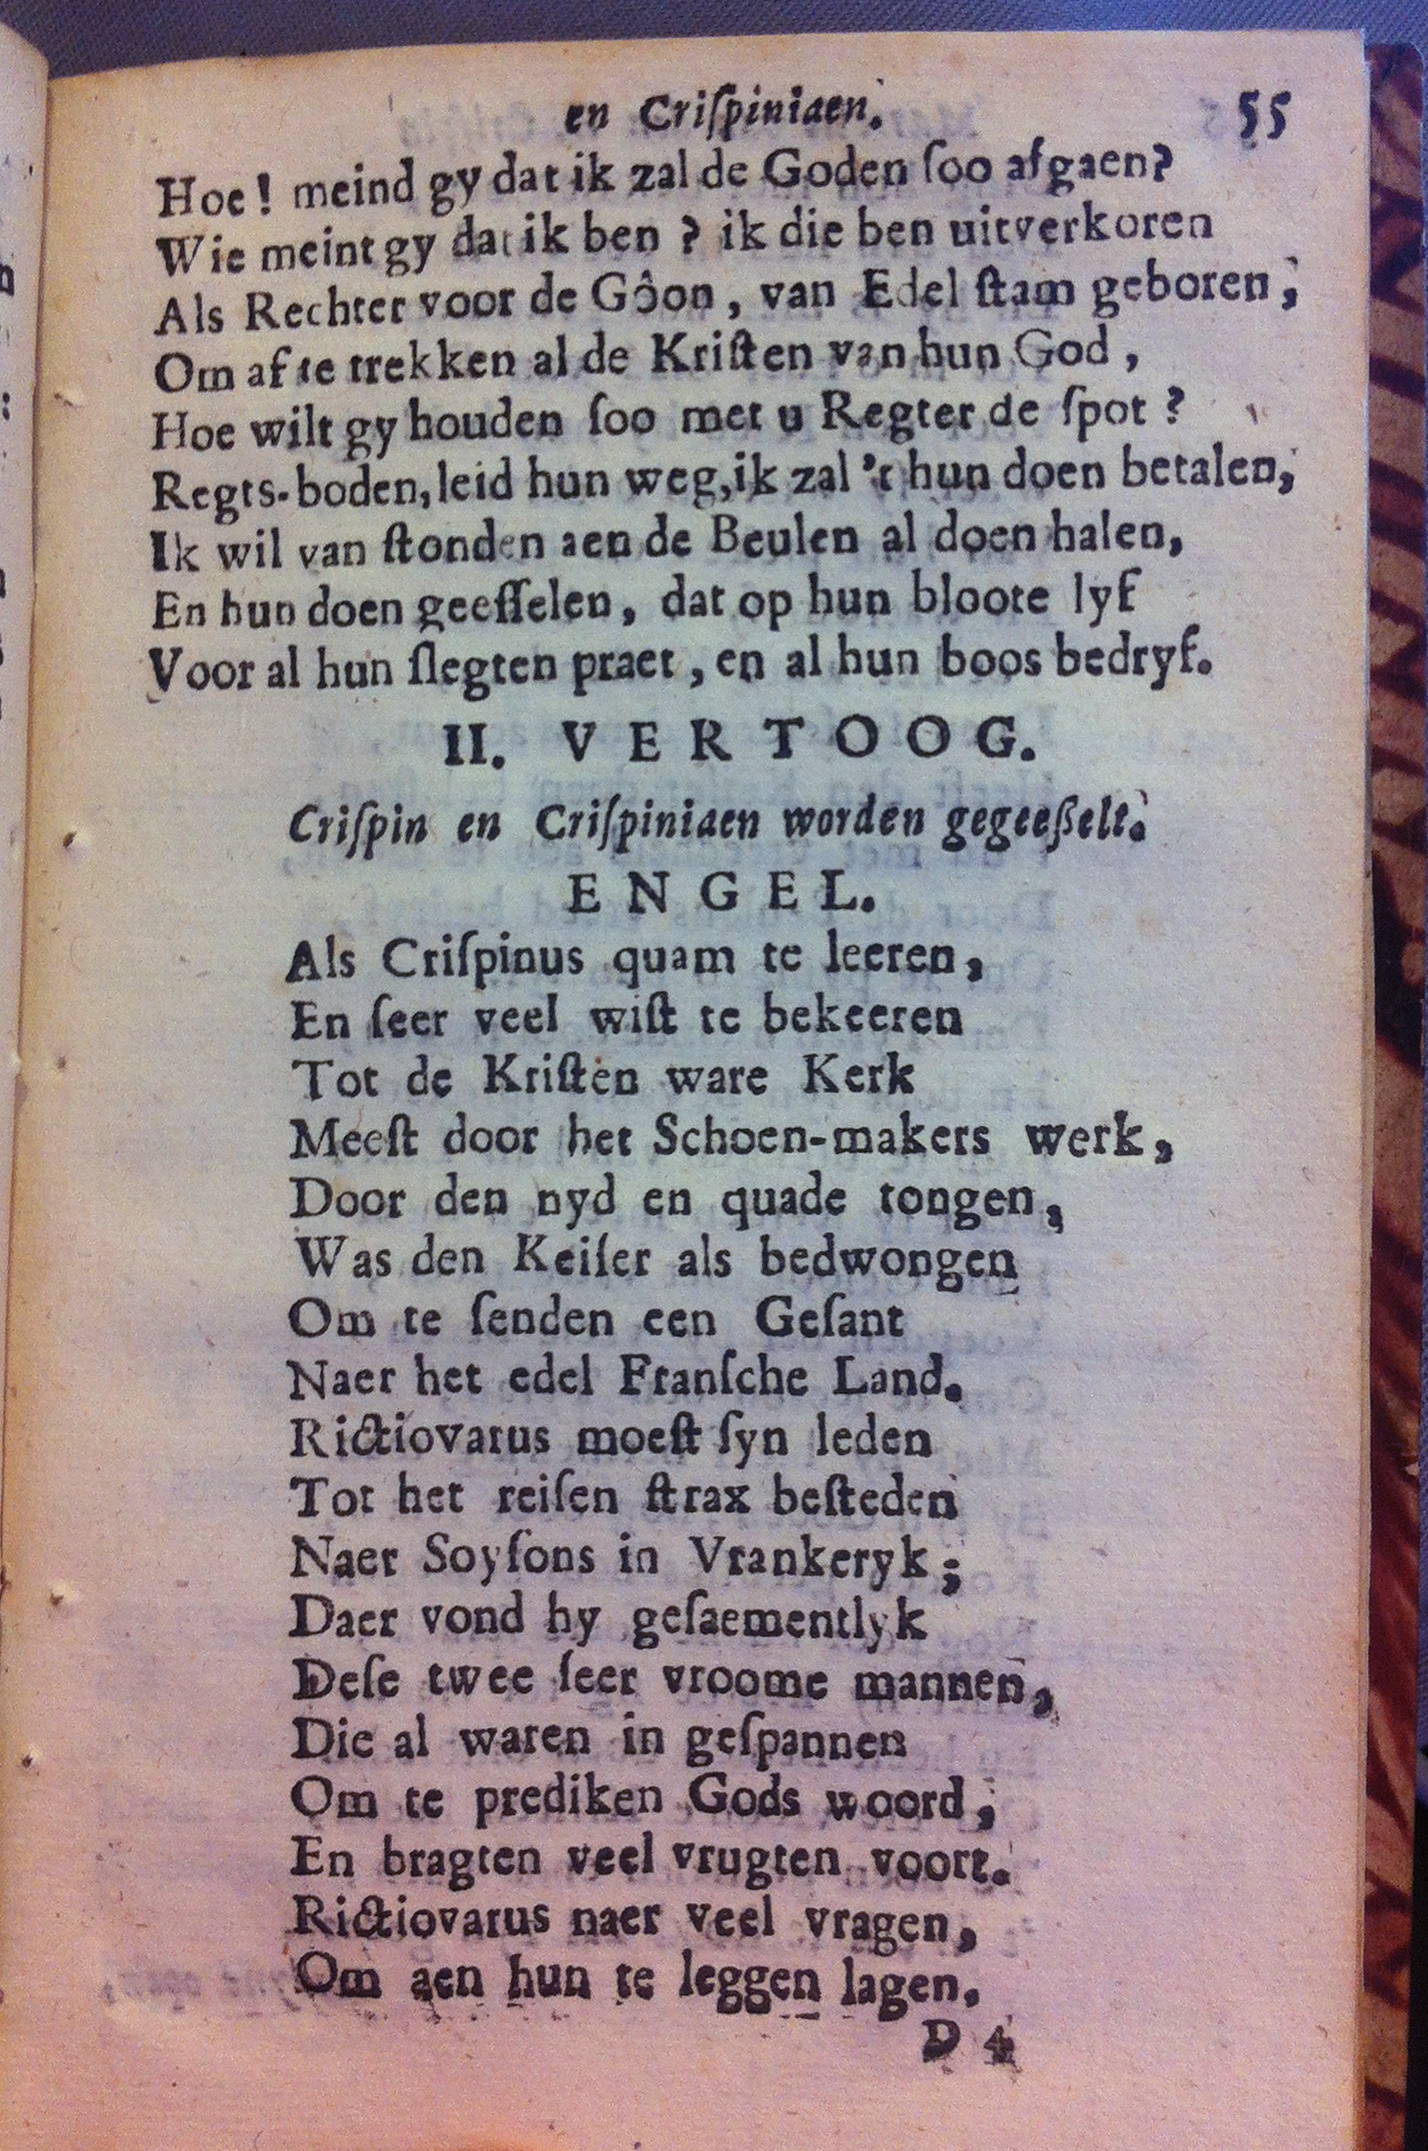 en Criſpiniaen. 55
Hoe! meind gy dat ik zal de Goden ſoo afgaen?
Wie meint gy dat ik ben? ik die ben uitverkoren
Als Rechter voor de Gôon, van Edel ſtam geboren,
Om af te trekken al de Kriſten van hun God,
Hoe wilt gy houden ſoo met u Regter de ſpot?
Regts-boden, leid hun weg, ik zal 't hun doen betalen,
Ik wil van ſtonden aen de Beulen al doen halen,
En hun doen geeſſelen, dat op hun bloote lyf
Voor al hun ſlegten praet, en al hun boos bedryf.
II. VERTOOG.
Criſpin en Criſpiniaen worden gegeeßelt.
ENGEL.
Als Criſpinus quam te leeren,
En ſeer veel wiſt te bekeeren
Tot de Kriſten ware Kerk
Meeſt door het Schoen-makers werk,
Door den nyd en quade tongen,
Was den Keiſer als bedwongen
Om te ſenden een Geſant
Naer het edel Franſche Land.
Rictiovarus moeſt ſyn leden
Tot het reiſen ſtrax beſteden
Naer Soyſons in Vrankeryk;
Daer vond hy geſaementlyk
Deſe twee ſeer vroome mannen,
Die al waren in geſpannen
Om te prediken Gods woord,
En bragten veel vrugten voort.
Rictiovarus naer veel vragen,
Om aen hun te leggen lagen.
D 4